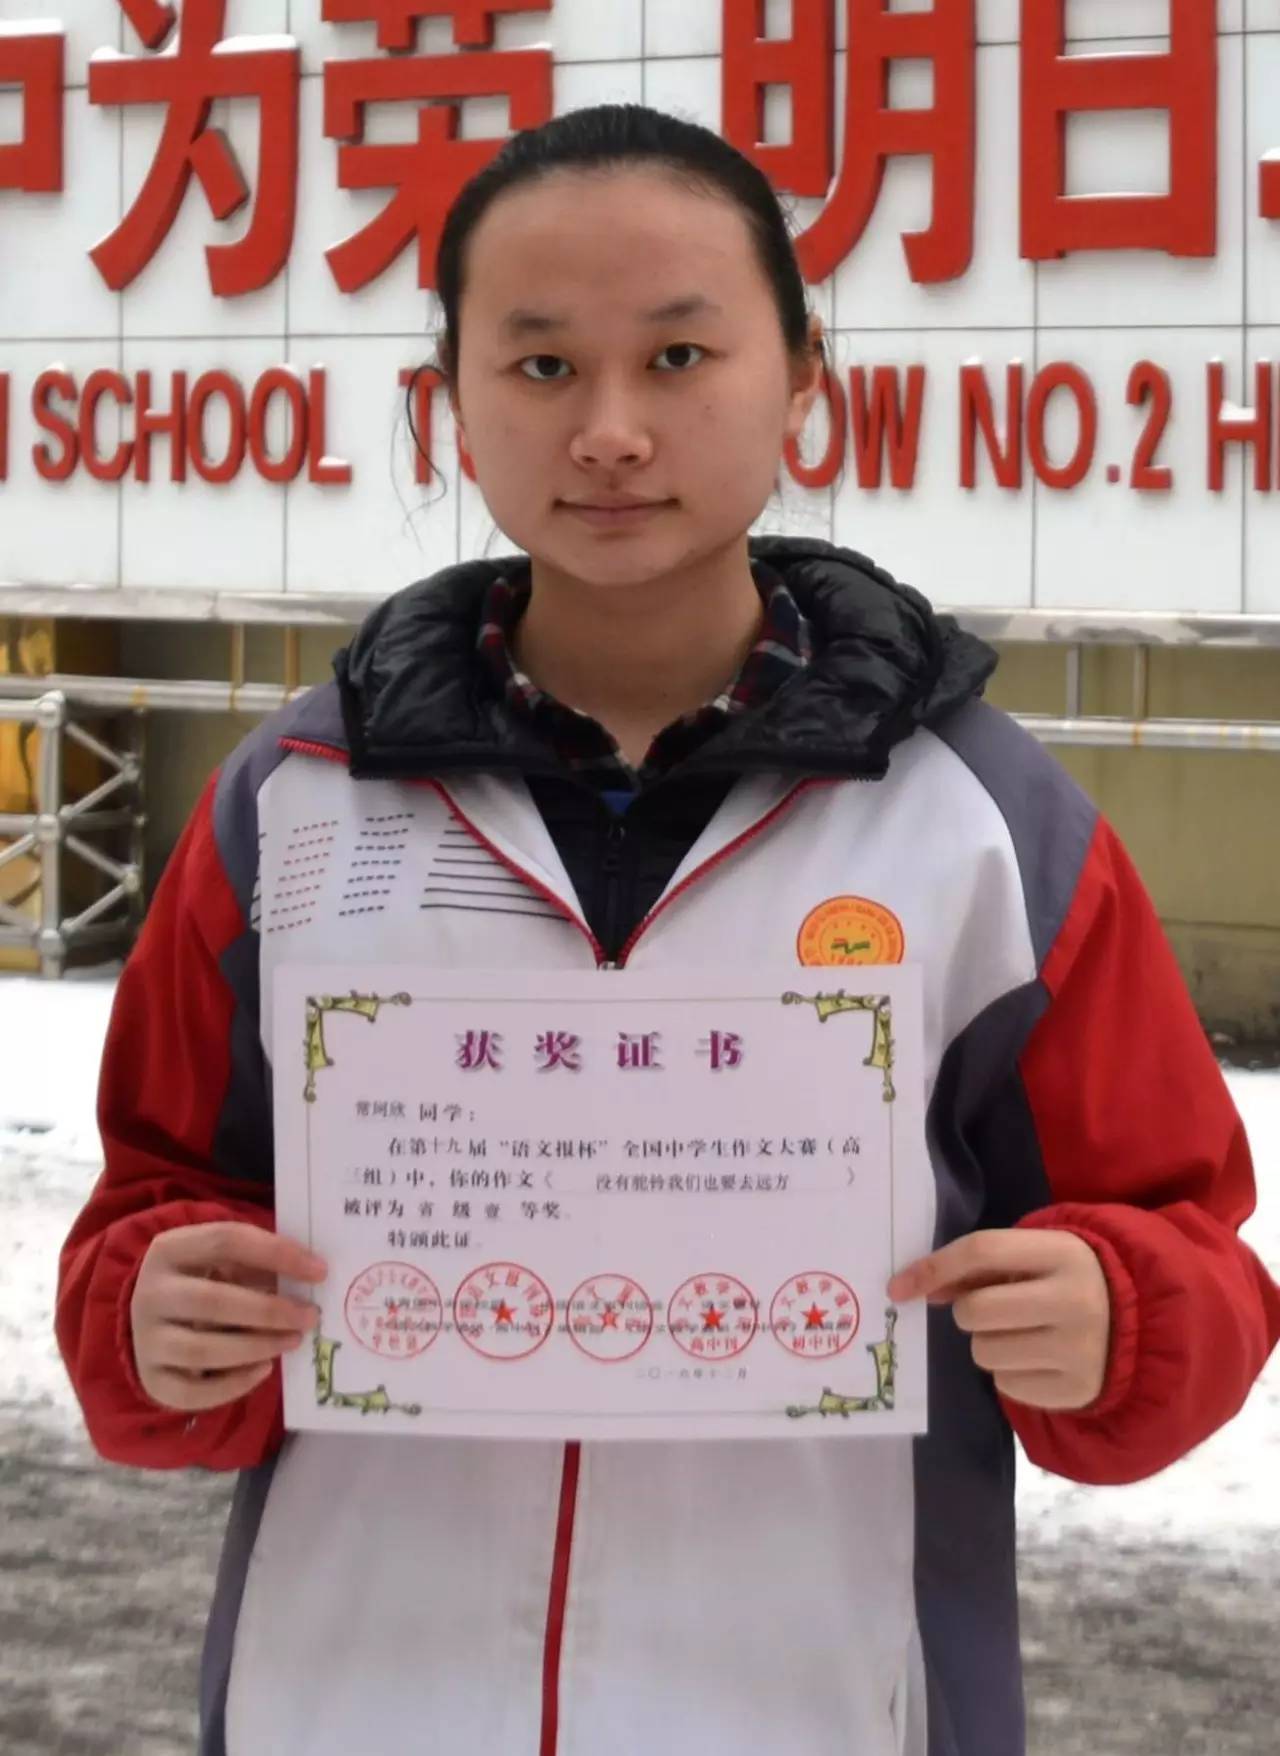 为荣 明日
SCHOOL TO OW NO.2 HI
获奖证书
常珂欣 同学：
在第十九届“语文报杯”全国中学生作文大赛（高
三组）中，你的作文《 没有驼铃我们也要去远方 》
被评为 省 级 壹 等奖。
特颁此证。
高中刊
初中刊
二〇一六年十二月